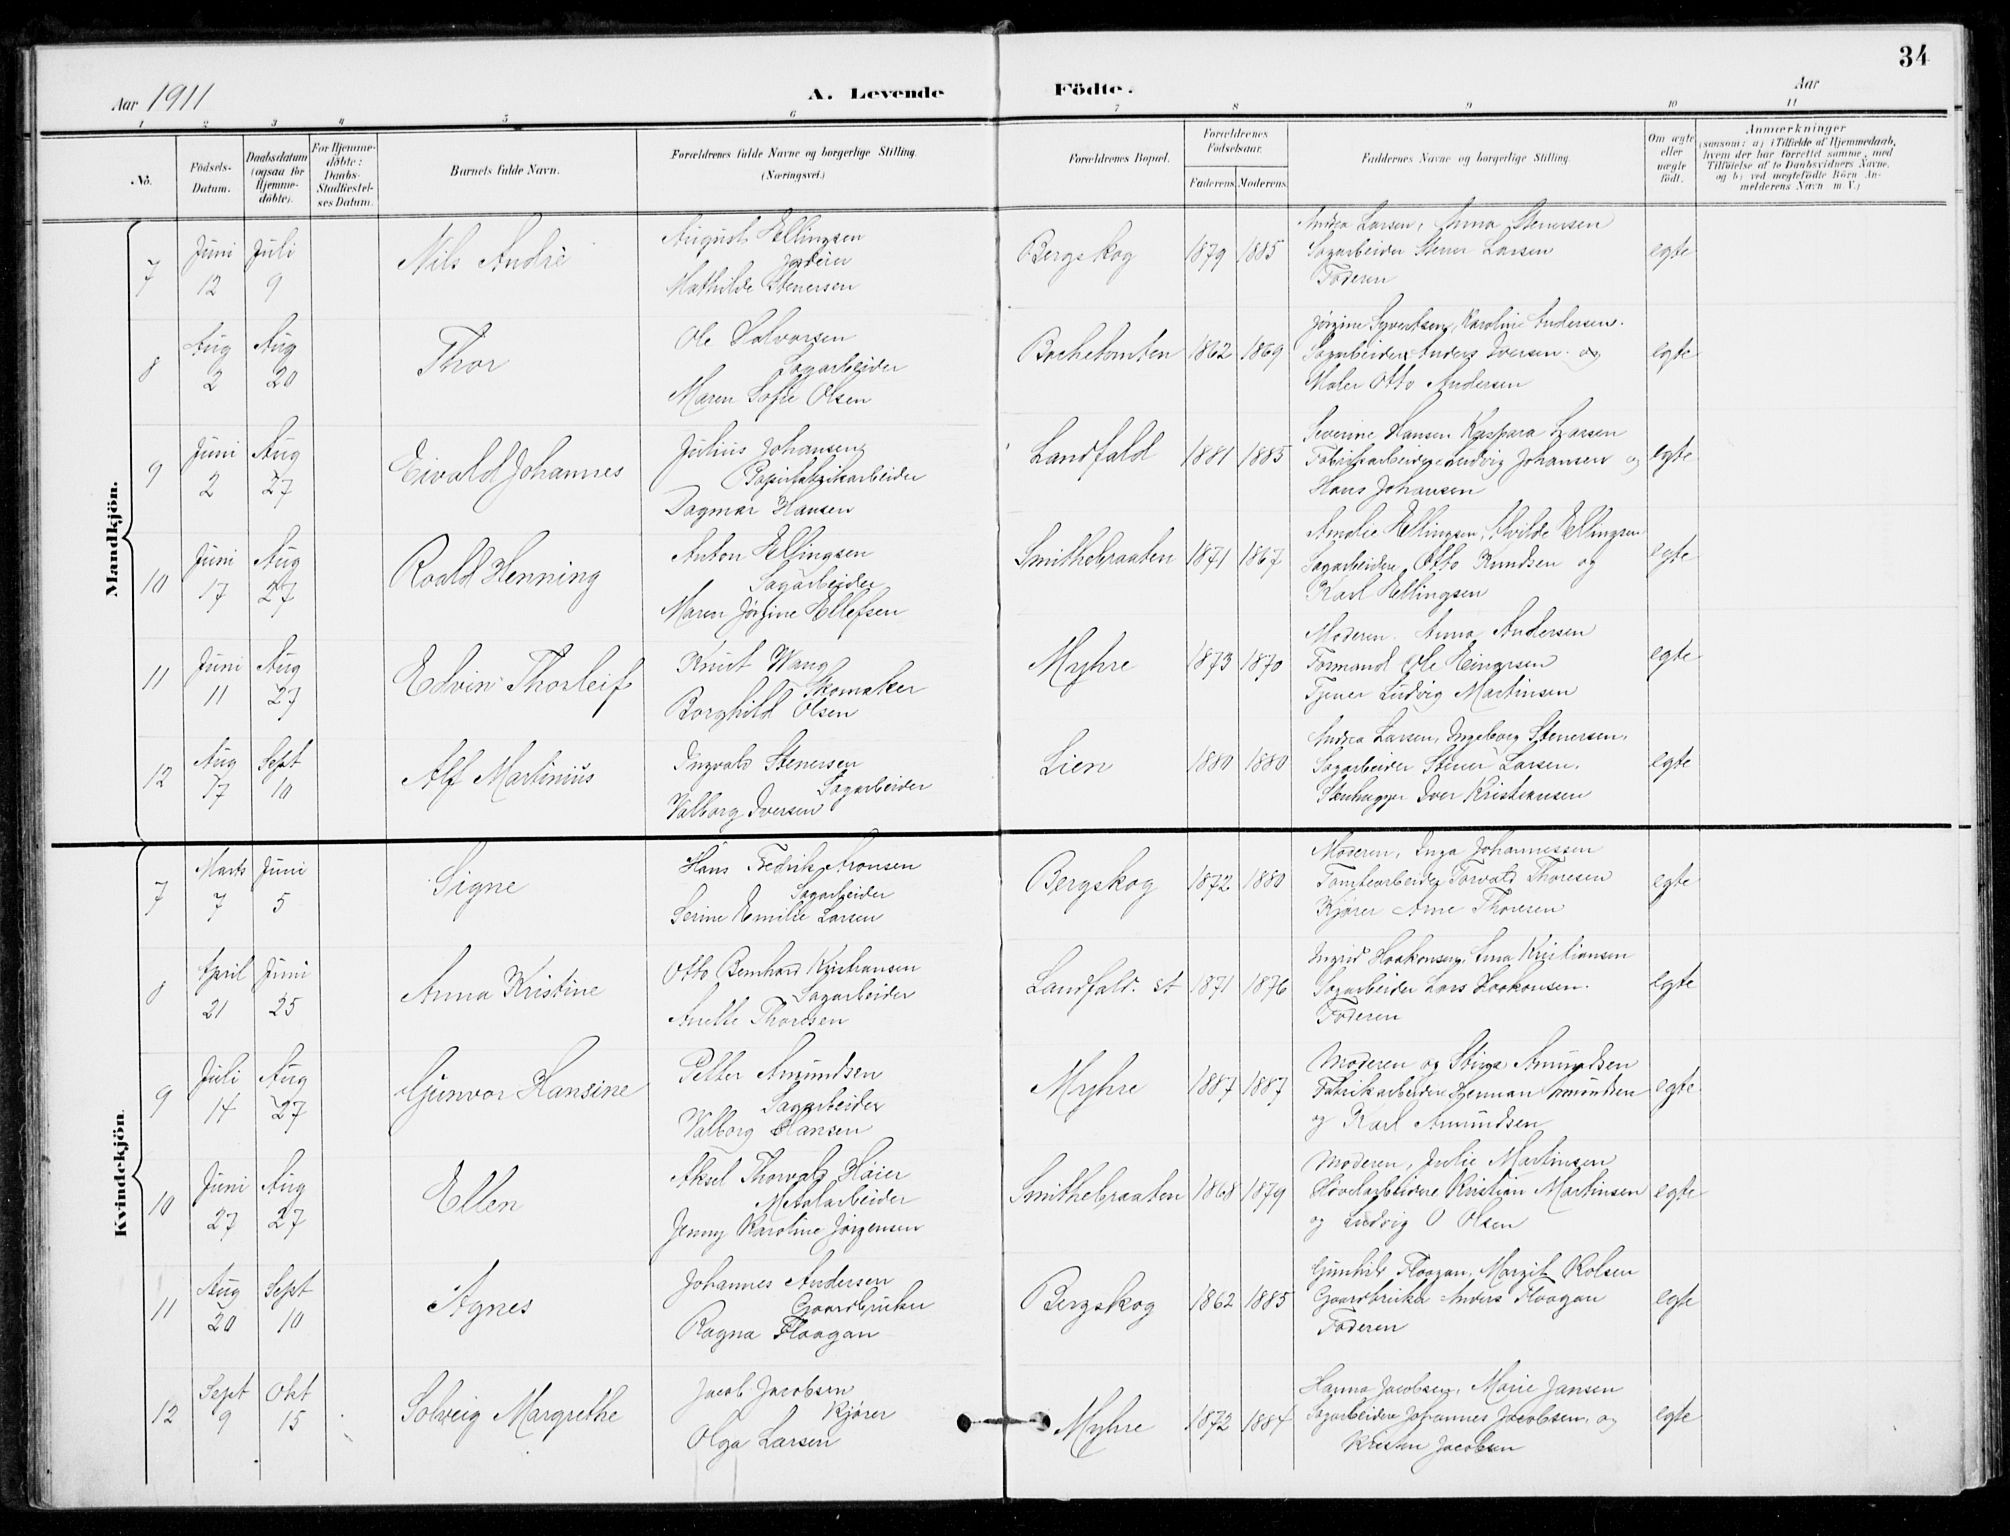 34
Aar 1911
A. Levende Födte.
Aar
1 2 3 4 5 6 7 8 9 10 11
No.
Födsels-Datum.
Daabsdatum (ogsaa for Hjemme-döbte).
For Hjemme-döbte: Daabs-Stadfæstel-ses Datum.
Barnets fulde Navn.
Forældrenes fulde Navne og borgerlige Stilling. (Næringsvei.)
Forældrenes Bopæl.
Forældrenes Födselsaar.
Faderens. Moderens.
Faddernes Navne og borgerlige Stilling.
Om ægte eller uægte födt.
Anmærkninger
(saasom: a) i Tilfælde af Hjemmedaab, hvem der har forrettet samme, med Tilföielse af to Daabsvidners Navne, og b) ved uægtefödte Börn Anmelderens Navn m. V.)
Mandkjön.
7 Juni 12 Juli 9 Nils Andrè
August Ellingsen
Mathilde Stenersen
Bergskog 1879 1885
Andrea Larsen, Anna Stenersen
Sagarbeider Stener Larsen
Faderen
egte
8 Aug 2 Aug 20 Thor
Ole Halvorsen
Sagarbeider
Maren Sofie Olsen
Bochetomten 1862 1869
Jørgine Syvertsen, Karoline Andersen.
Sagarbeider Anders Iversen og
Maler Otto Andersen
egte
9 Juni 2 Aug 27 Eivald Johannes
Julius Johansen
Papirfabrikarbeider
Dagmar Hansen
Landfald 1881 1885
Severine Hansen Kaspara Larsen
Fabrikarbeidere Ludvig Johansen og
Hans Johansen
egte
10 Juni 17 Aug 27 Roald Henning
Anton Ellingsen
Sagarbeider
Maren Jørgine Ellefsen
Smithebraaten 1871 1867
Amalie Ellingsen, Alvilde Ellingsen
Sagarbeidere Otto Knudsen og
Karl Ellingsen
egte
11 Juni 11 Aug 27 Edvin Thorleif
Knut Wang
Skomaker
Borghild Olsen
Myhre 1873 1870
Moderen. Anna Andersen
Formand Ole Einarsen
Tjener Ludvig Martinsen
egte
12 Aug 17 Sept 10 Alf Martinius
Ingvald Stenersen
Sagarbeider
Valborg Iversen
Lien 1880 1880
Andrea Larsen, Ingeborg Stenersen.
Sagarbeider Stener Larsen.
Stenhugger Iver Kristiansen
egte
Kvindekjön.
7 Marts 7 Juni 5 Signe
Hans Fredrik Aronsen
Sagarbeider
Serine Emilie Larsen
Bergskog 1872 1880
Moderen, Inga Johannessen
Tomtearbeider Torvald Thoresen
Kjører Arne Thoresen
egte
8 April 21 Juni 25 Anna Kristine
Otto Bernhard Kristiansen
Sagarbeider
Anette Thoresen
Landfald. st 1871 1876
Ingrid Haakonsen, Anna Kristiansen
Sagarbeider Lars Haakonsen.
Faderen
egte
9 Juli 14 Aug 27 Gunvor Hansine
Petter Amundsen
Sagarbeider
Valborg Hansen
Myhre 1887 1887
Moderen og Stina Amundsen
Fabrikarbeidere Herman Amundsen
og Karl Amundsen
egte
10 Juni 27 Aug 27 Ellen
Aksel Thorvald Høier
Metalarbeider
Jenny Karoline Jørgensen
Smithebraaten 1868 1879
Moderen, Julie Martinsen
Høvelarbeidere Kristian Martinsen
og Ludvig O Olsen
egte
11 Aug 20 Sept 10 Agnes
Johannes Andersen
Gaardbruker
Ragna Flaagan
Bergskog 1862 1885
Gunhild Flaagan, Margit Rolsen
Gaardbruker Anders Flaagan
Faderen
egte
12 Sept 9 Okt 15 Solveig Margrethe
Jacob Jacobsen
Kjører
Olga Larsen
Myhre 1872 1884
Hanna Jacobsen, Marie Jansen
Sagarbeidere Johannes Jacobsen, og
Kristen Jacobsen
egte